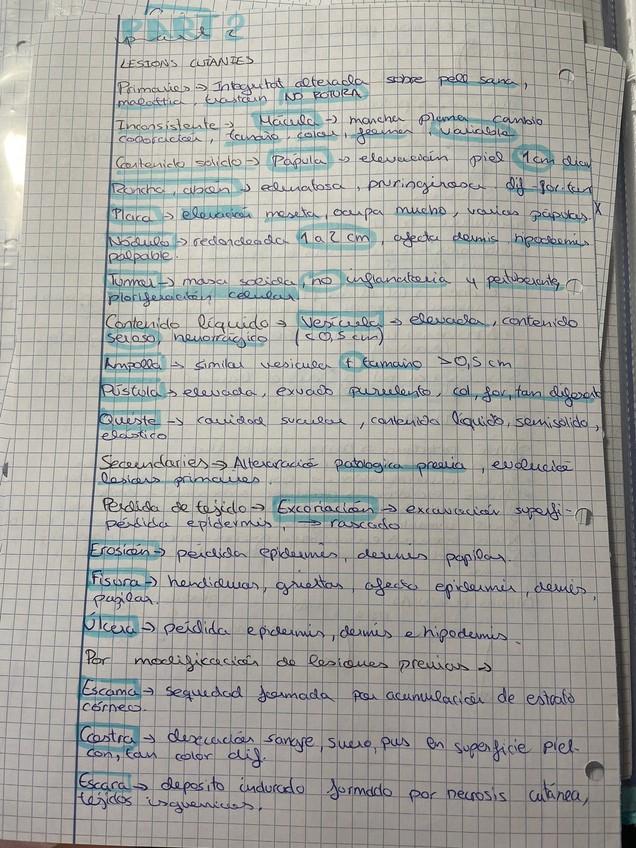 PART 2
part 2
LESIONS CUTANIES
Primaries → Integritat alterada sobre pell sana,
malaltia, trastorn NO ROTURA
Inconsistente → Mácula → mancha plana cambio
coloración, tamaño, color, forma, variable
Contenido solido → Pápula → elevación piel 1cm diam
Roncha, habón → edematosa, pruriginosa dif. for. tan
Placa → elevación meseta, ocupa mucho, varias papulas.
Nódulo → redondeada 1 a 2 cm, afecta dermis hipodermis
palpable.
Tumor → masa solida, no inflamatoria y pertuberante,
ploriferación celular
Contenido líquido → Vesícula → elevada, contenido
seroso, hemorragico (<0,5cm)
Ampolla → similar vesicula + tamaño >0,5cm
Pústula → elevada, exudado purulento, col, for, tan diferent
Quiste → cavidad sacular, contenido líquido, semisolido,
elástico
Secundaries → Alteraració patologica previa, evolució
lesions primaries.
Perdida de tejido → Excoriación → excavación superfi-
pérdida epidermis, → rascado
Erosión → pérdida epidermis, dermis papilar.
Fisura → hendiduras, grietas, afecta epidermis, dermis,
papilar.
Úlcera → pérdida epidermis, dermis e hipodermis.
Por modificación de lesiones previas →
Escama → sequedad formada por acumulación de estrato
córneo.
Costra → desecación sangre, suero, pus en superficie piel-
con, tan color dif.
Escara → deposito indurado formado por necrosis cutánea,
tejidos isquemicos.